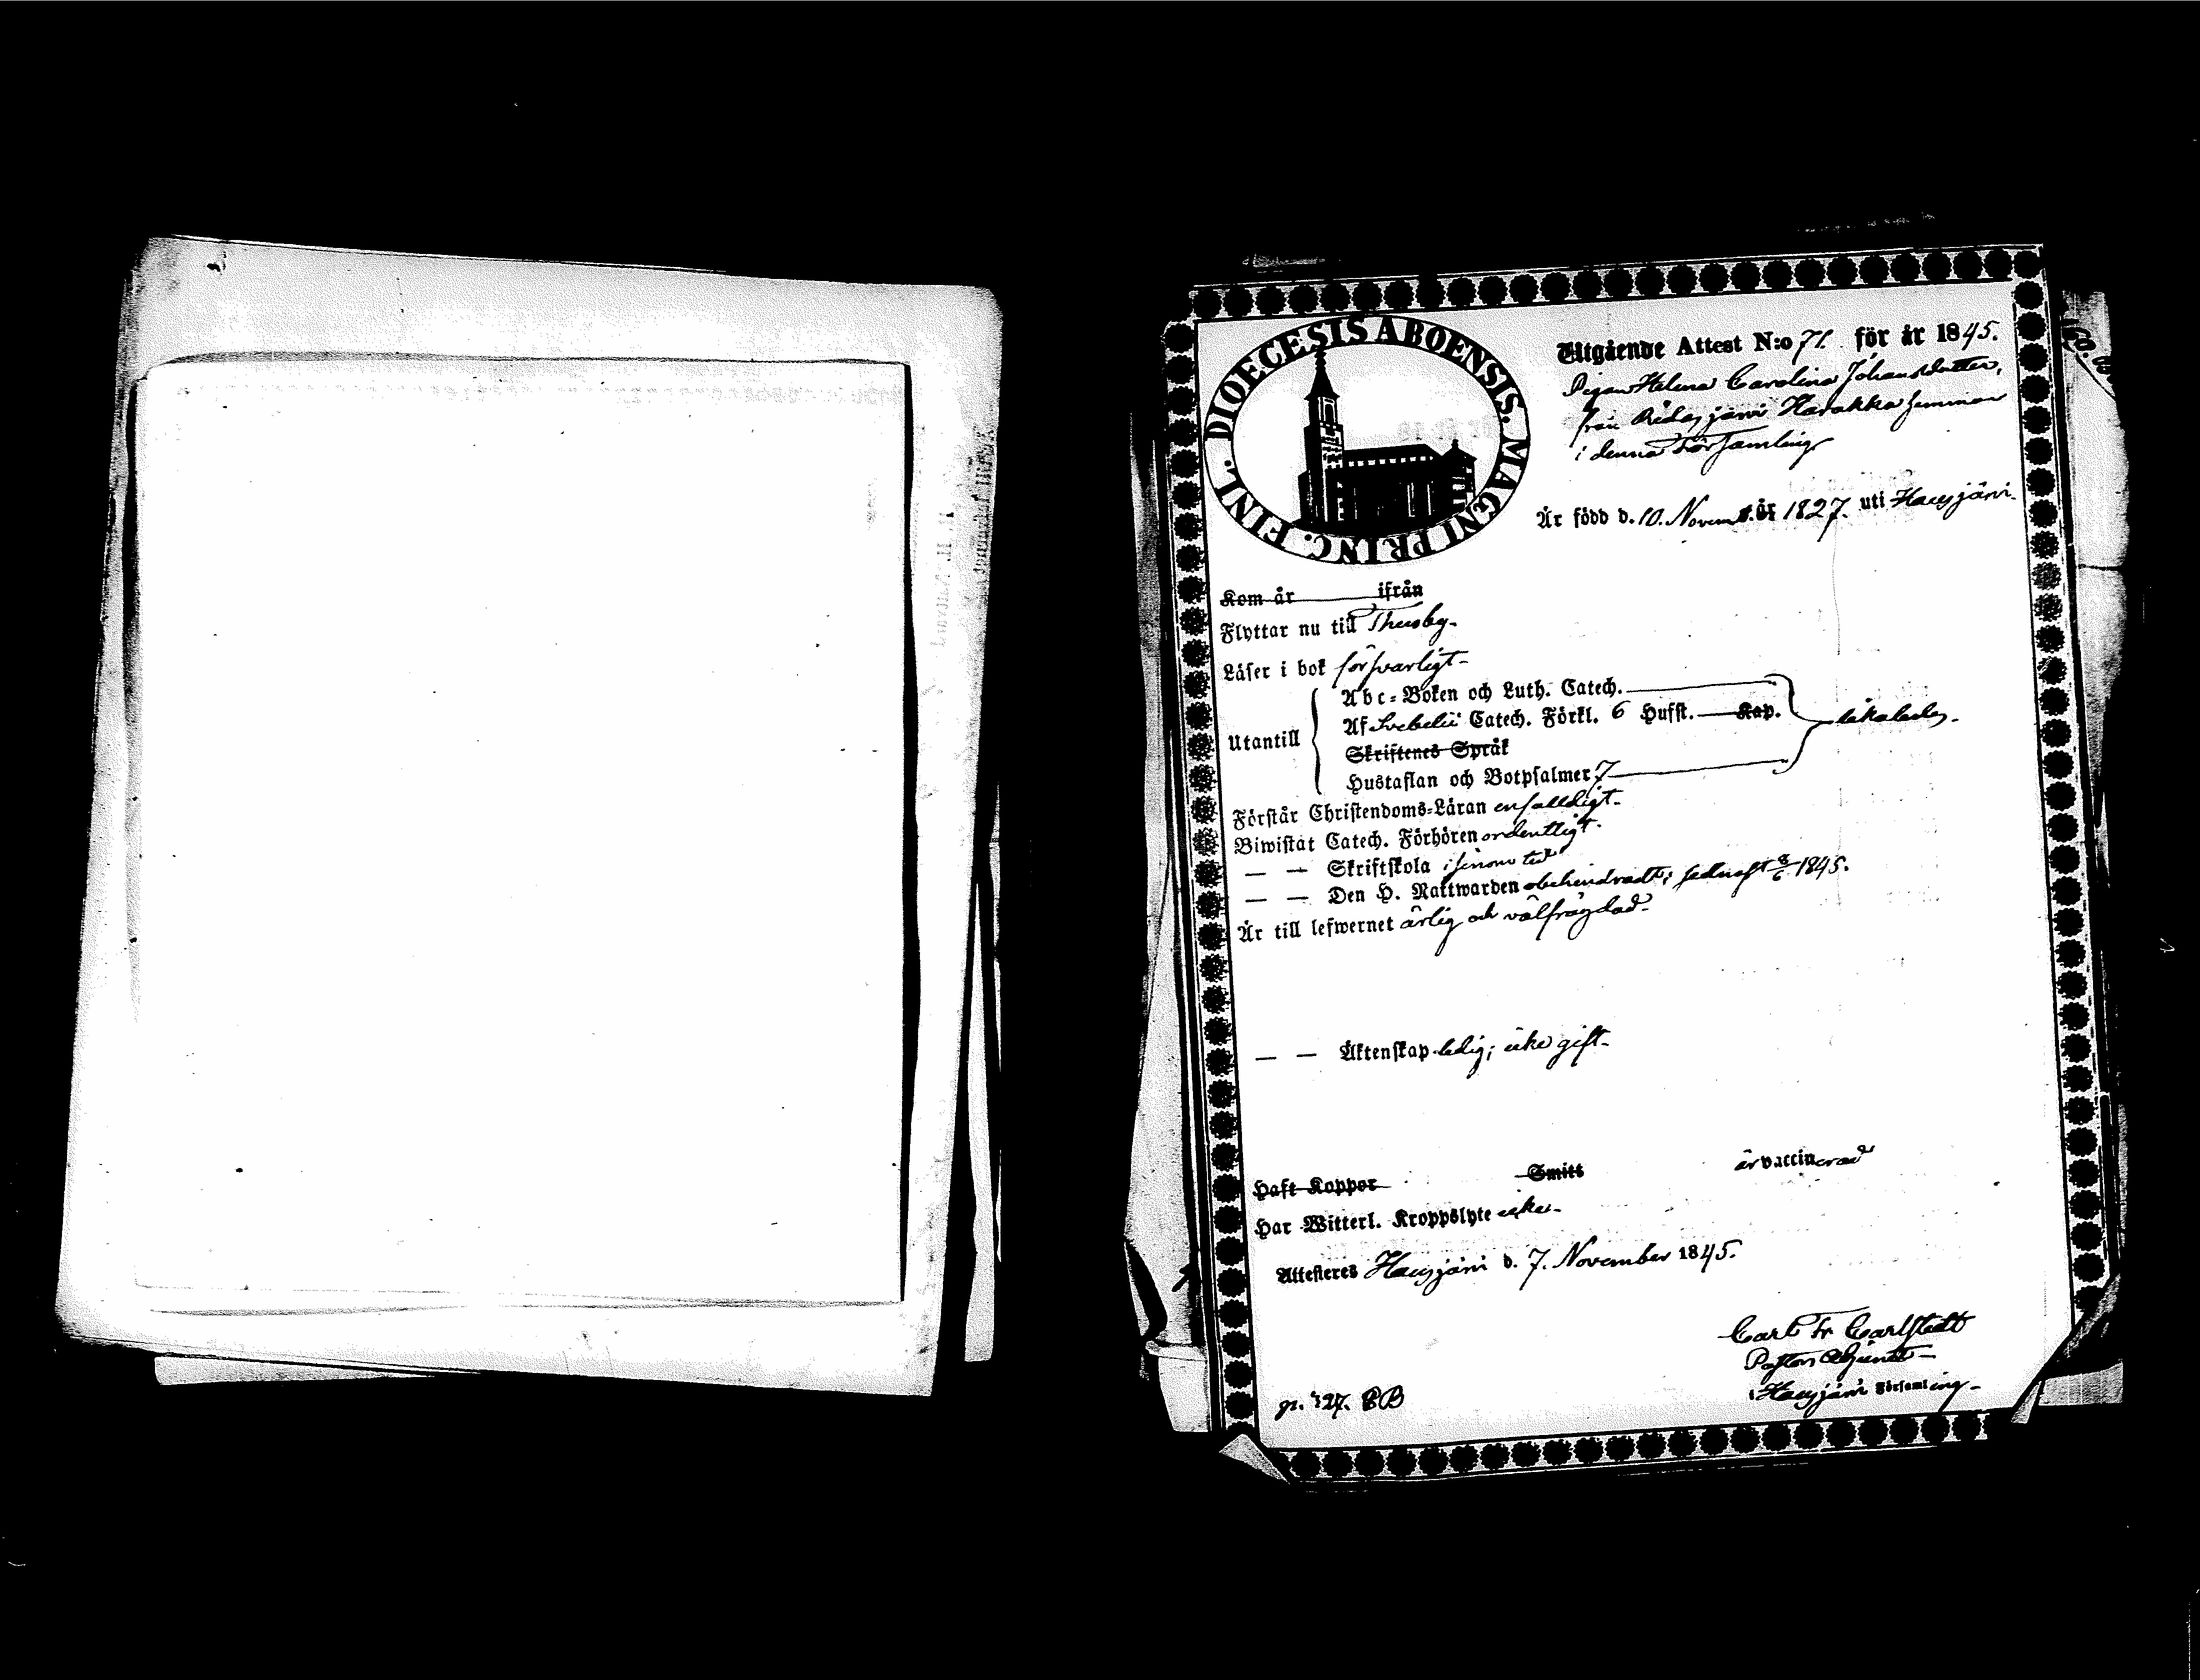 DIOECESIS ABOENSIS. MAGNI PRINC. FINL.
Utgående Attest N:o 71. för år 1845.
Pigan Helena Carolina Johansdotter,
från Ridasjärvi Harakka hemman
i denna Församling
Är född d. 10. Novemb. år 1827. uti Hausjärvi.
Kom år ifrån
Flyttar nu till Thusby.
Läser i bok försvarligt.
Abc-Boken och Luth. Catech.
Utantill
Af Svebelii Catech. Förkl. 6 Hufst. Kap. likaledes.
Skriftenes Språk
Hustaflan och Botpsalmer 7
Förstår Christendoms-Läran enfalldigt.
Biwistat Catech. Förhören ordentligt.
— — Skriftskola i sinom tid
— — Den H. Nattwarden obehindradt; sednast 8/6 1845.
Är till lefwernet ärlig och välfrägdad.
— — Äktenskap ledig; icke gift.
Haft Koppor Smitt är vaccinerad
Har Witterl. Kroppslyte icke.
Attesteras Hausjärvi d. 7. November 1845.
Carl Fr Carlstedt
Pastors Adjunct
i Hausjärvi Församling.